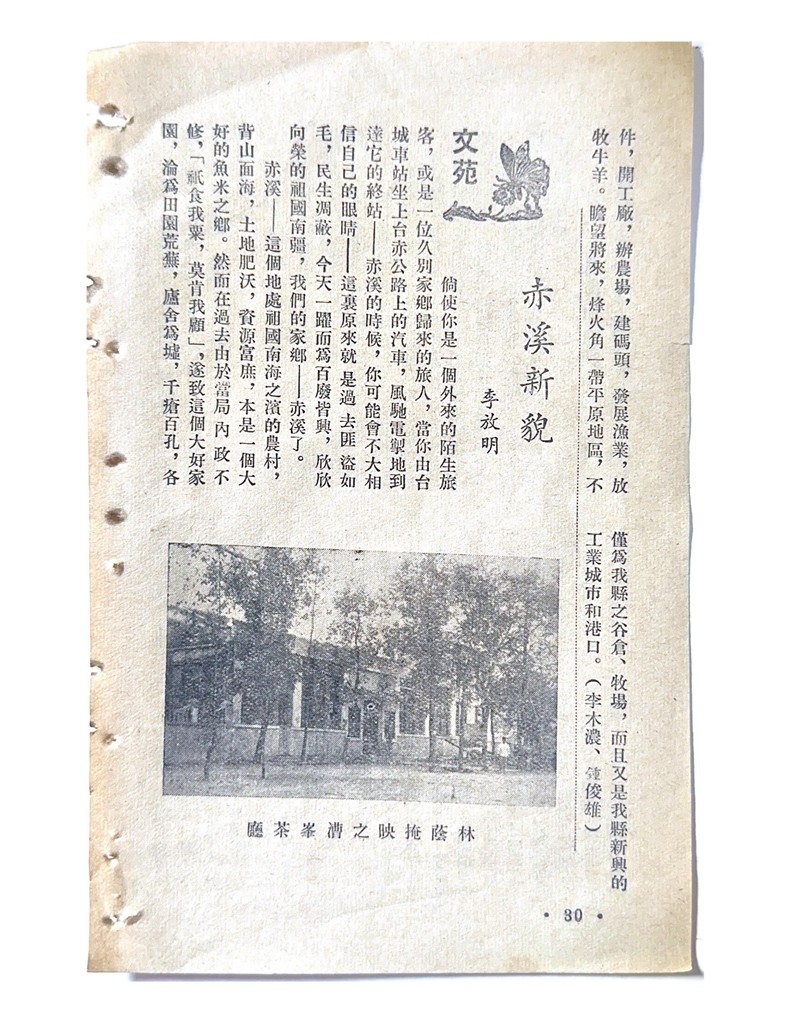 件，開工廠，辦農場，建碼頭，發展漁業，放
牧牛羊。瞻望將來，烽火角一帶平原地區，不
僅爲我縣之谷倉、牧場，而且又是我縣新興的
工業城市和港口。（李木濃、鍾俊雄）
文苑
赤溪新貌
李放明
倘使你是一個外來的陌生旅
客，或是一位久別家鄉歸來的旅人，當你由台
城車站坐上台赤公路上的汽車，風馳電掣地到
達它的終站——赤溪的時候，你可能會不大相
信自己的眼睛——這裏原來就是過去匪盜如
毛，民生凋蔽，今天一躍而爲百廢皆興，欣欣
向榮的祖國南疆，我們的家鄉——赤溪了。
赤溪——這個地處祖國南海之濱的農村，
背山面海，土地肥沃，資源富庶，本是一個大
好的魚米之鄉。然而在過去由於當局內政不
修，「祇食我粟，莫肯我顧」，遂致這個大好家
園，淪爲田園荒蕪，廬舍爲墟，千瘡百孔，各
林蔭掩映之漕峯茶廳
· 30 ·